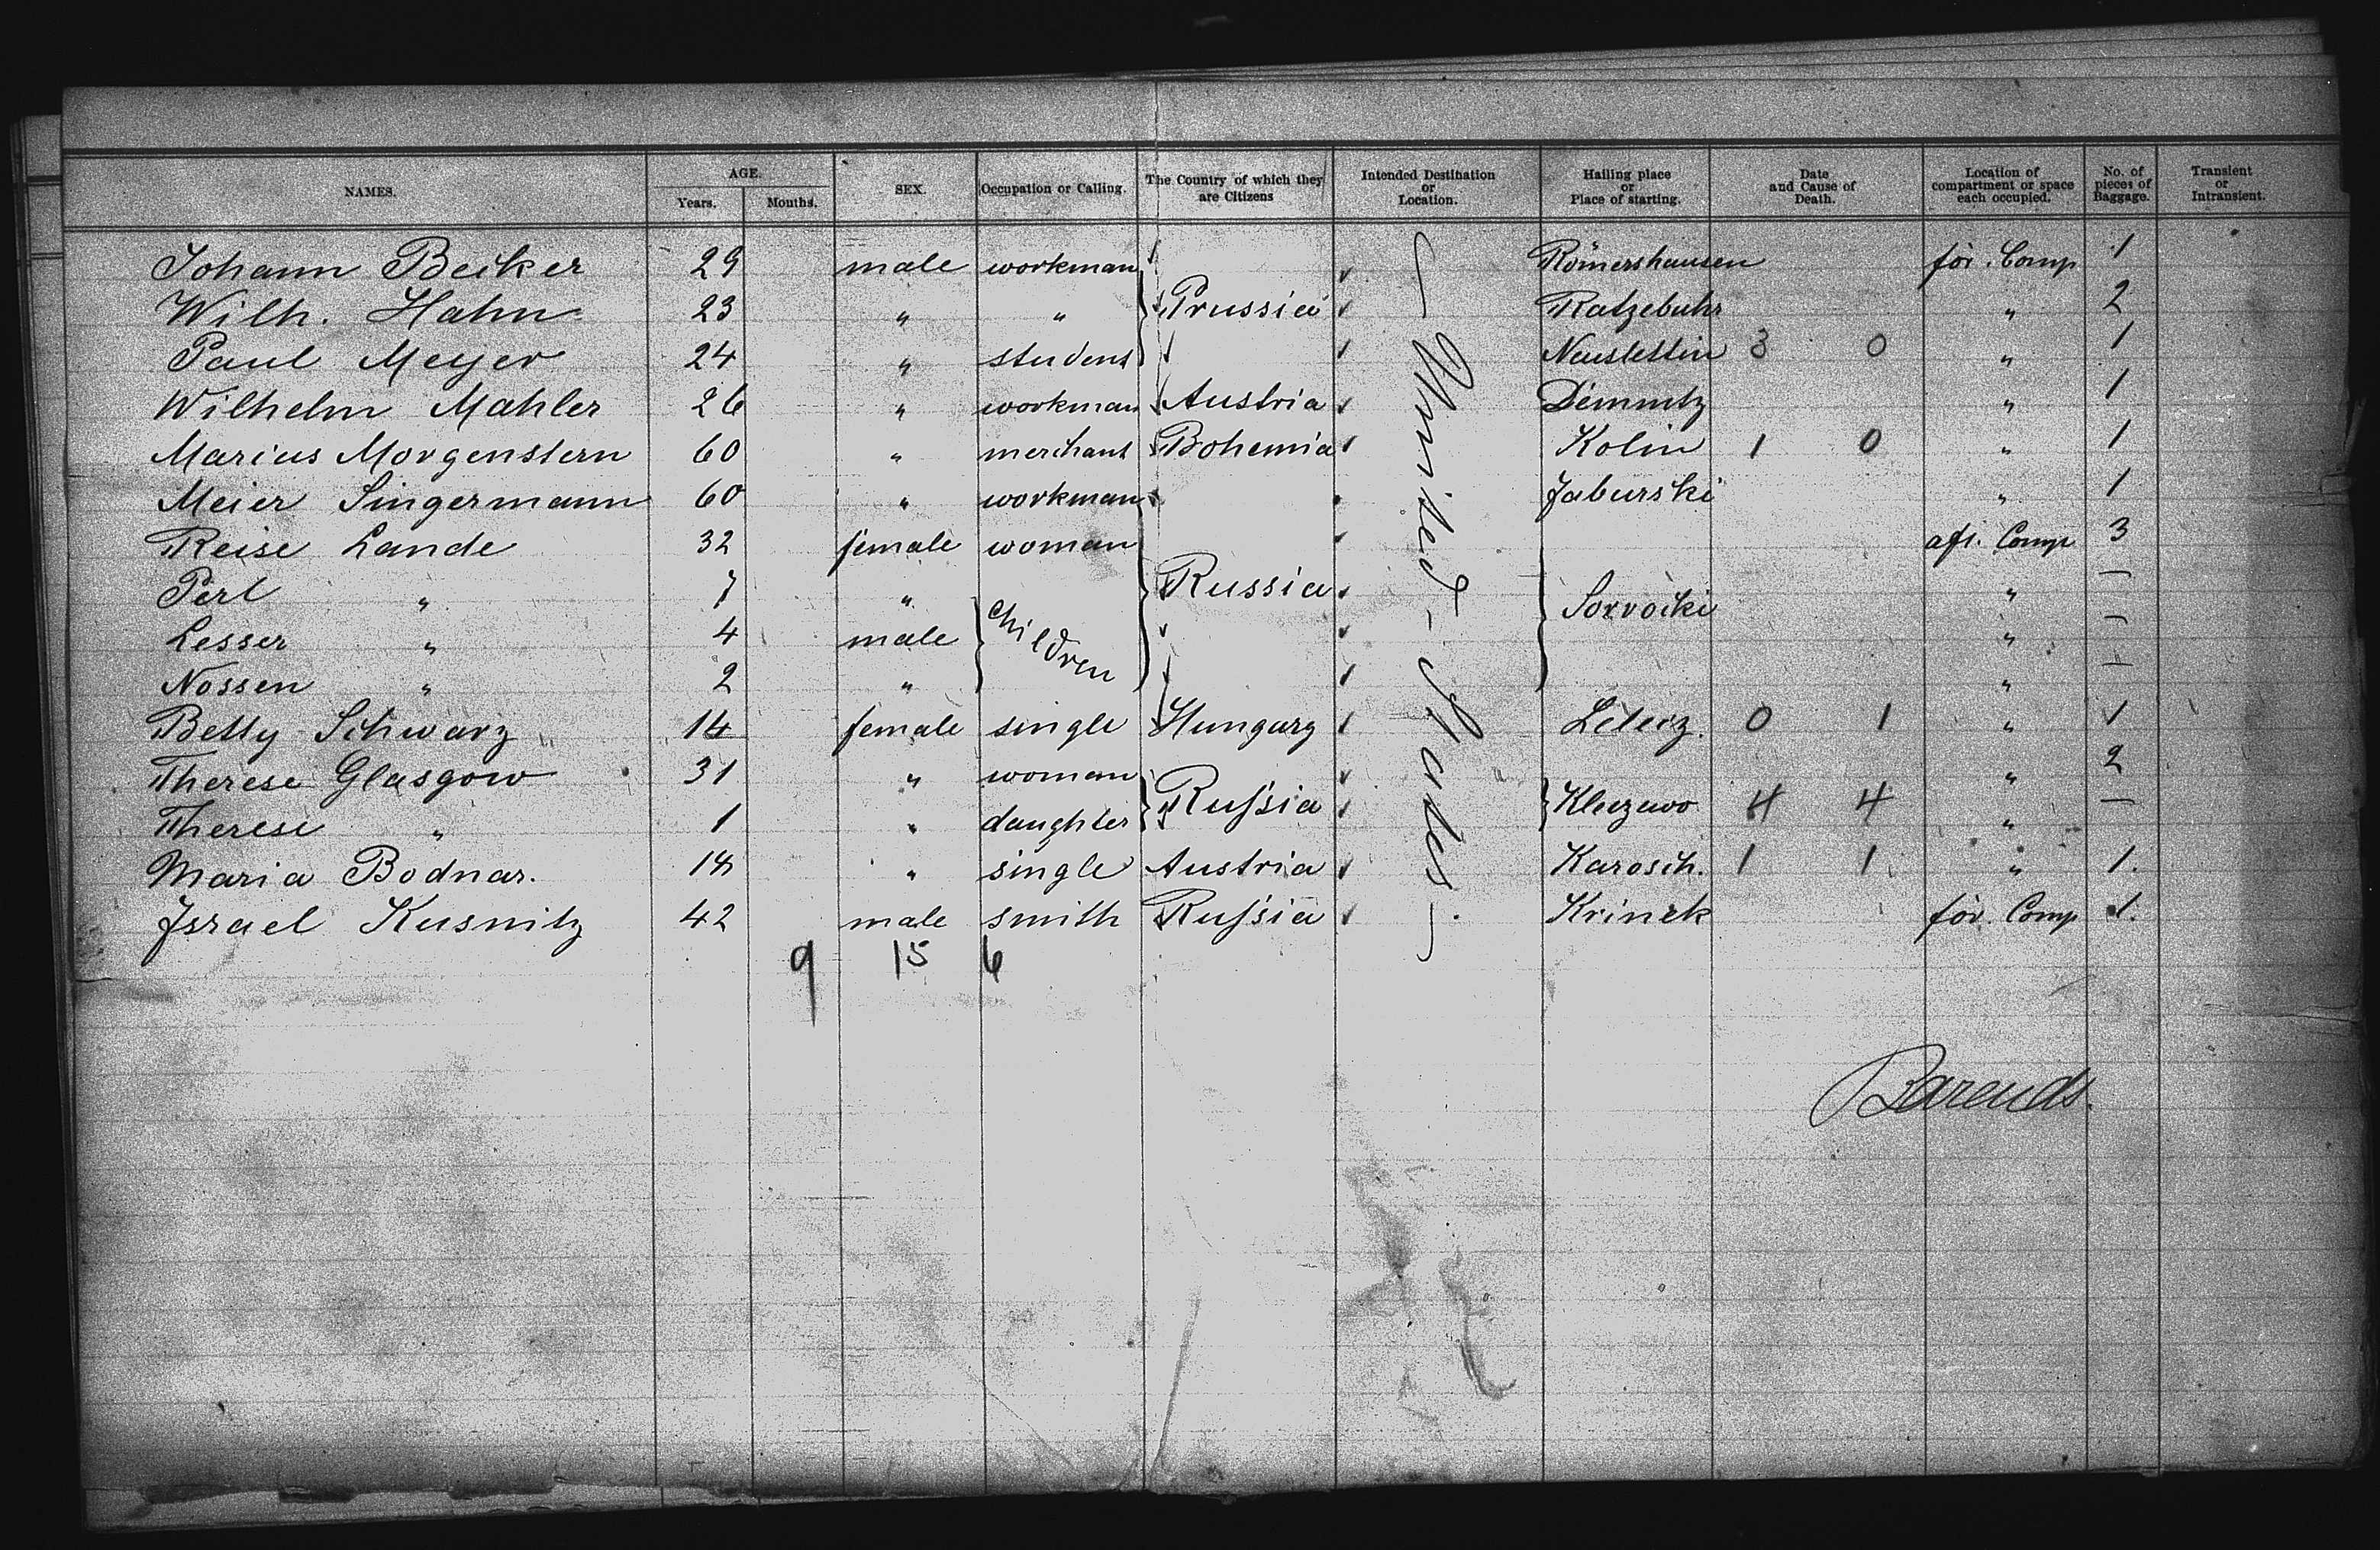 NAMES. AGE. Years. Months. SEX. Occupation or Calling. The Country of which they are Citizens Intended Destination or Location. Hailing place or Place of starting. Date and Cause of Death. Location of compartment or space each occupied. No. of pieces of Baggage. Transient or Intransient.
Johann Becker 29 male workman Römershausen for. Comp 1
Wilh. Hahn 23 " " Prussia Ratzebuhr " 2
Paul Meyer 24 " student Neustettin 3 0 " 1
Wilhelm Mahler 26 " workman Austria " 1
Marius Morgenstern 60 " merchant Bohemia Kolin 1 0 " 1
Meier Singermann 60 " workman Jaburski " 1
Reise Lande 32 female woman aft. Comp 3
Perl " 7 " children Russia Sorvocki " —
Lesser " 4 male " —
Nossen " 2 " " —
Betty Schwarz 14 female single Hungary 0 1 " 1
Therese Glasgow 31 " woman Russia " 2
Therese " 1 " daughter 4 4 " —
Maria Bodnar. " single Austria Karosch. 1 1 " 1.
Israel Kusnitz 42 male smith Russia Krinek for. Comp 1.
United-States
9 15 6
Barends.